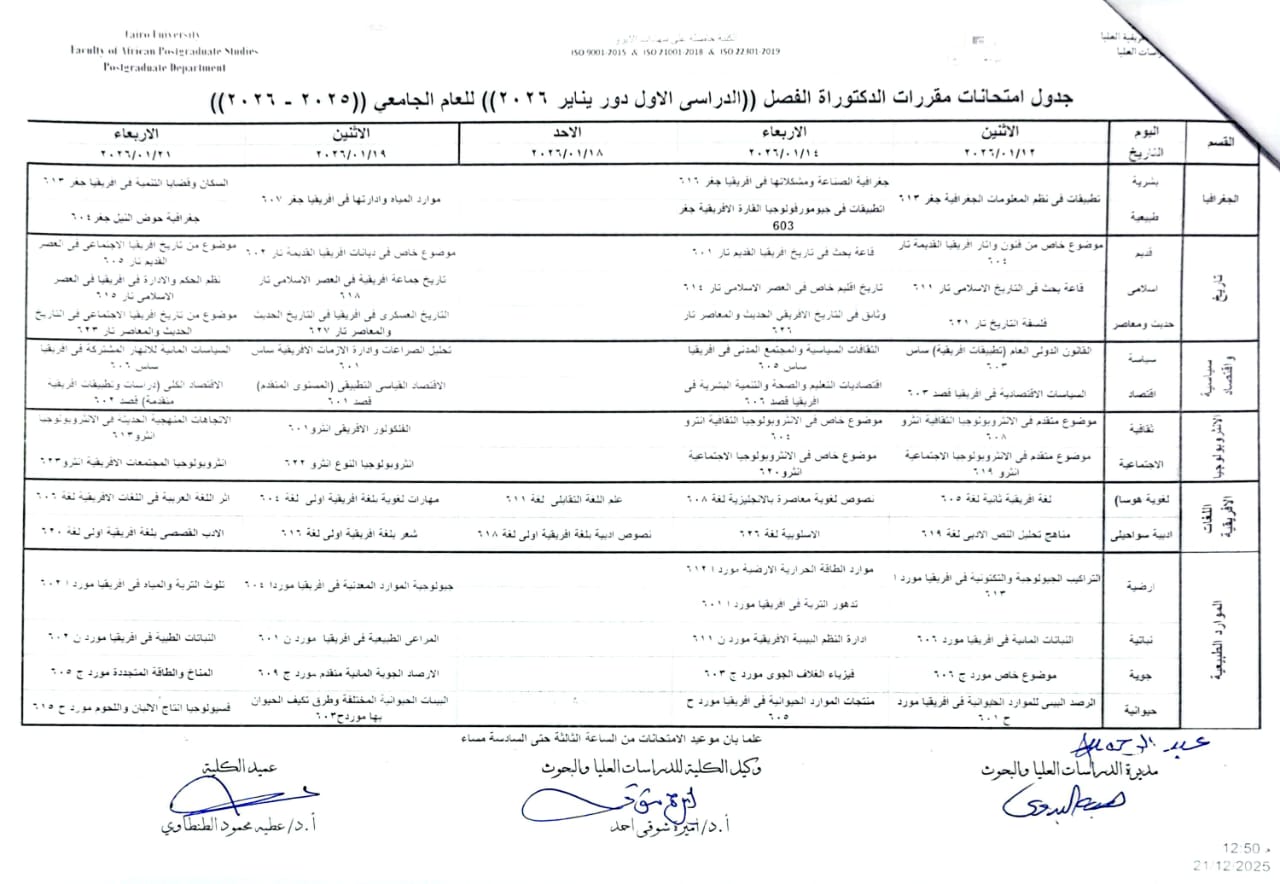 Cairo University
Faculty of African Postgraduate Studies
Postgraduate Department
ISO 9001-2015 & ISO 21001-2018 & ISO 22301-2019
جدول امتحانات مقررات الدكتوراة الفصل ((الدراسى الاول دور يناير ٢٠٢٦)) للعام الجامعي ((٢٠٢٥ - ٢٠٢٦))
القسم اليوم الاثنين الاربعاء الاحد الاثنين الاربعاء
التاريخ ٢٠٢٦/٠١/١٢ ٢٠٢٦/٠١/١٤ ٢٠٢٦/٠١/١٨ ٢٠٢٦/٠١/١٩ ٢٠٢٦/٠١/٢١
الجغرافيا
بشرية تطبيقات فى نظم المعلومات الجغرافية جغر ٦١٣ جغرافية الصناعة ومشكلاتها فى افريقيا جغر ٦١٦ موارد المياه وادارتها فى افريقيا جغر ٦٠٧ السكان وقضايا التنمية فى افريقيا جغر ٦١٣
طبيعية تطبيقات فى جيومورفولوجيا القارة الافريقية جغر 603 جغرافية حوض النيل جغر ٦٠٤
تاريخ
قديم موضوع خاص من فنون واثار افريقيا القديمة تار ٦٠٤ قاعة بحث فى تاريخ افريقيا القديم تار ٦٠١ موضوع خاص فى ديانات افريقيا القديمة تار ٦٠٢ موضوع من تاريخ افريقيا الاجتماعى فى العصر القديم تار ٦٠٥
اسلامى قاعة بحث فى التاريخ الاسلامى تار ٦١١ تاريخ اقليم خاص فى العصر الاسلامى تار ٦١٤ تاريخ جماعة افريقية فى العصر الاسلامى تار ٦١٨ نظم الحكم والادارة فى افريقيا فى العصر الاسلامى تار ٦١٥
حديث ومعاصر فلسفة التاريخ تار ٦٢١ وثائق فى التاريخ الافريقي الحديث والمعاصر تار ٦٢٦ التاريخ العسكرى فى افريقيا فى التاريخ الحديث والمعاصر تار ٦٢٧ موضوع من تاريخ افريقيا الاجتماعى فى التاريخ الحديث والمعاصر تار ٦٢٣
سياسية واقتصاد
سياسة القانون الدولى العام (تطبيقات افريقية) ساس ٦٠٣ الثقافات السياسية والمجتمع المدنى فى افريقيا ساس ٦٠٥ تحليل الصراعات وادارة الازمات الافريقية ساس ٦٠١ السياسات المائية للانهار المشتركة فى افريقيا ساس ٦٠٦
اقتصاد السياسات الاقتصادية فى افريقيا قصد ٦٠٣ اقتصاديات التعليم والصحة والتنمية البشرية فى افريقيا قصد ٦٠٦ الاقتصاد القياسى التطبيقى (المستوى المتقدم) قصد ٦٠١ الاقتصاد الكلى (دراسات وتطبيقات افريقية متقدمة) قصد ٦٠٢
الانثروبولوجيا
ثقافية موضوع متقدم فى الانثروبولوجيا الثقافية انثرو ٦٠٨ موضوع خاص فى الانثروبولوجيا الثقافية انثرو ٦٠٤ الفلكولور الافريقى انثرو٦٠١ الاتجاهات المنهجية الحديثه فى الانثروبولوجيا انثرو٦١٣
الاجتماعية موضوع متقدم فى الانثروبولوجيا الاجتماعية انثرو ٦١٩ موضوع خاص فى الانثروبولوجيا الاجتماعية انثرو٦٢٠ انثروبولوجيا النوع انثرو ٦٢٢ انثروبولوجيا المجتمعات الافريقية انثرو٦٢٣
اللغات الافريقية
لغوية هوسا) لغة افريقية ثانية لغة ٦٠٥ نصوص لغوية معاصرة بالانجليزية لغة ٦٠٨ علم اللغة التقابلى لغة ٦١١ مهارات لغوية بلغة افريقية اولى لغة ٦٠٤ اثر اللغة العربية فى اللغات الافريقية لغة ٦٠٦
ادبية سواحيلى مناهج تحليل النص الادبى لغة ٦١٩ الاسلوبية لغة ٦٢٦ نصوص ادبية بلغة افريقية اولى لغة ٦١٨ شعر بلغة افريقية اولى لغة ٦١٦ الادب القصصى بلغة افريقية اولى لغة ٦٢٠
الموارد الطبيعية
ارضية التراكيب الجيولوجية والتكتونية فى افريقيا مورد ا ٦١٣ موارد الطاقة الحرارية الارضية مورد ا ٦١٢ جيولوجية الموارد المعدنية فى افريقيا موردا ٦٠٤ تلوث التربة والمياه فى افريقيا مورد ا ٦٠٢
تدهور التربة فى افريقيا مورد ا ٦٠١
نباتية النباتات المائية فى افريقيا مورد ٦٠٦ ادارة النظم البيئية الافريقية مورد ن ٦١١ المراعى الطبيعية فى افريقيا مورد ن ٦٠١ النباتات الطبية فى افريقيا مورد ن ٦٠٢
جوية موضوع خاص مورد ج ٦٠٦ فيزياء الغلاف الجوى مورد ج ٦٠٣ الارصاد الجوية المائية متقدم مورد ج ٦٠٩ المناخ والطاقة المتجددة مورد ج ٦٠٥
حيوانية الرصد البيئى للموارد الحيوانية فى افريقيا مورد ح ٦٠١ منتجات الموارد الحيوانية فى افريقيا مورد ح ٦٠٥ البيئات الحيوانية المختلفة وطرق تكيف الحيوان بها موردح٦٠٣ فسيولوجيا انتاج الألبان واللحوم مورد ح ٦١٥
علما بان موعيد الامتحانات من الساعة الثالثة حتى السادسة مساء
مديرة الدراسات العليا والبحوث
وكيل الكلية للدراسات العليا والبحوث
أ.د/ اميرة شوقى احمد
عميد الكلية
أ.د/ عطيه محمود الطنطاوي
12:50 م
21/12/2025